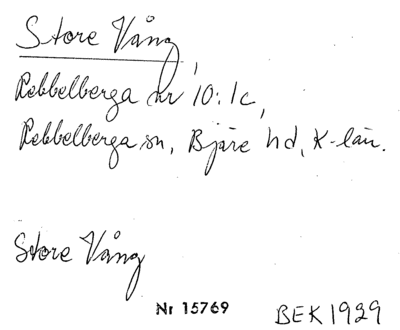 Store Vång,
Rebbelberga nr 10:1c,
Rebbelberga sn, Bjäre hd, K-län.
Store Vång
Nr 15769 BEK 1929